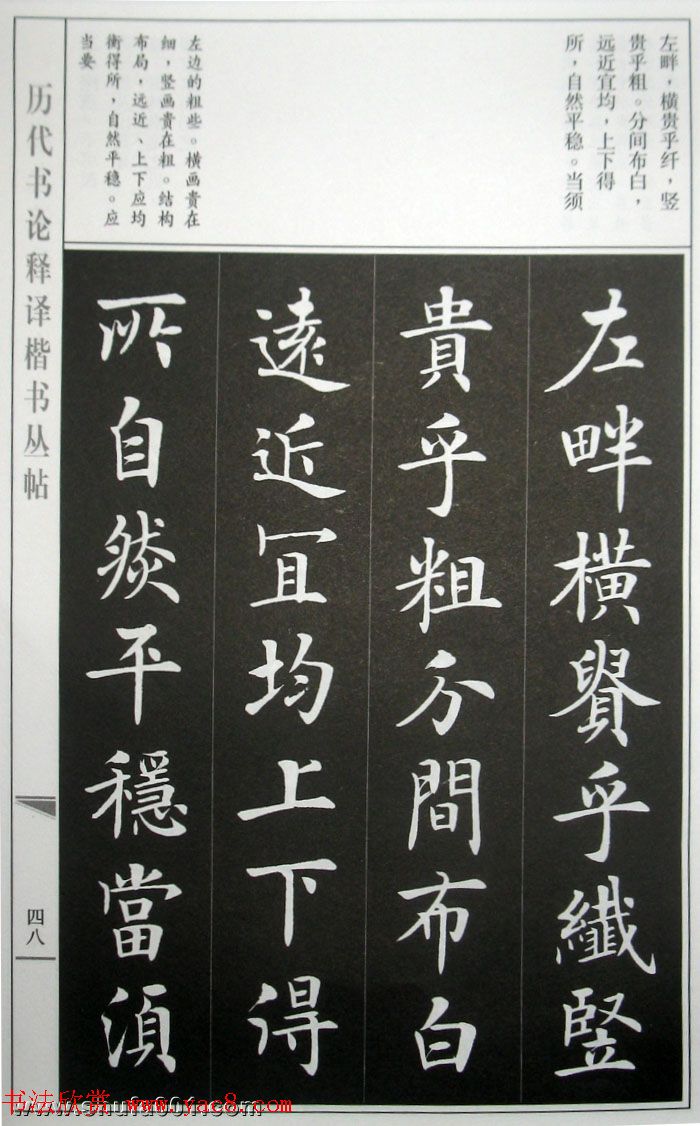 左畔，横贵乎纤，竖
贵乎粗。分间布白，
远近宜均，上下得
所，自然平稳。当须
左边的粗些。横画贵在
细，竖画贵在粗。结构
布局，远近、上下应均
衡得所，自然平稳。应
当要
左畔橫貴乎纖竪
貴乎粗分間布白
遠近宜均上下得
所自然平穩當須
历代书论释译楷书丛帖
四八
书法欣赏 www.yac8.com